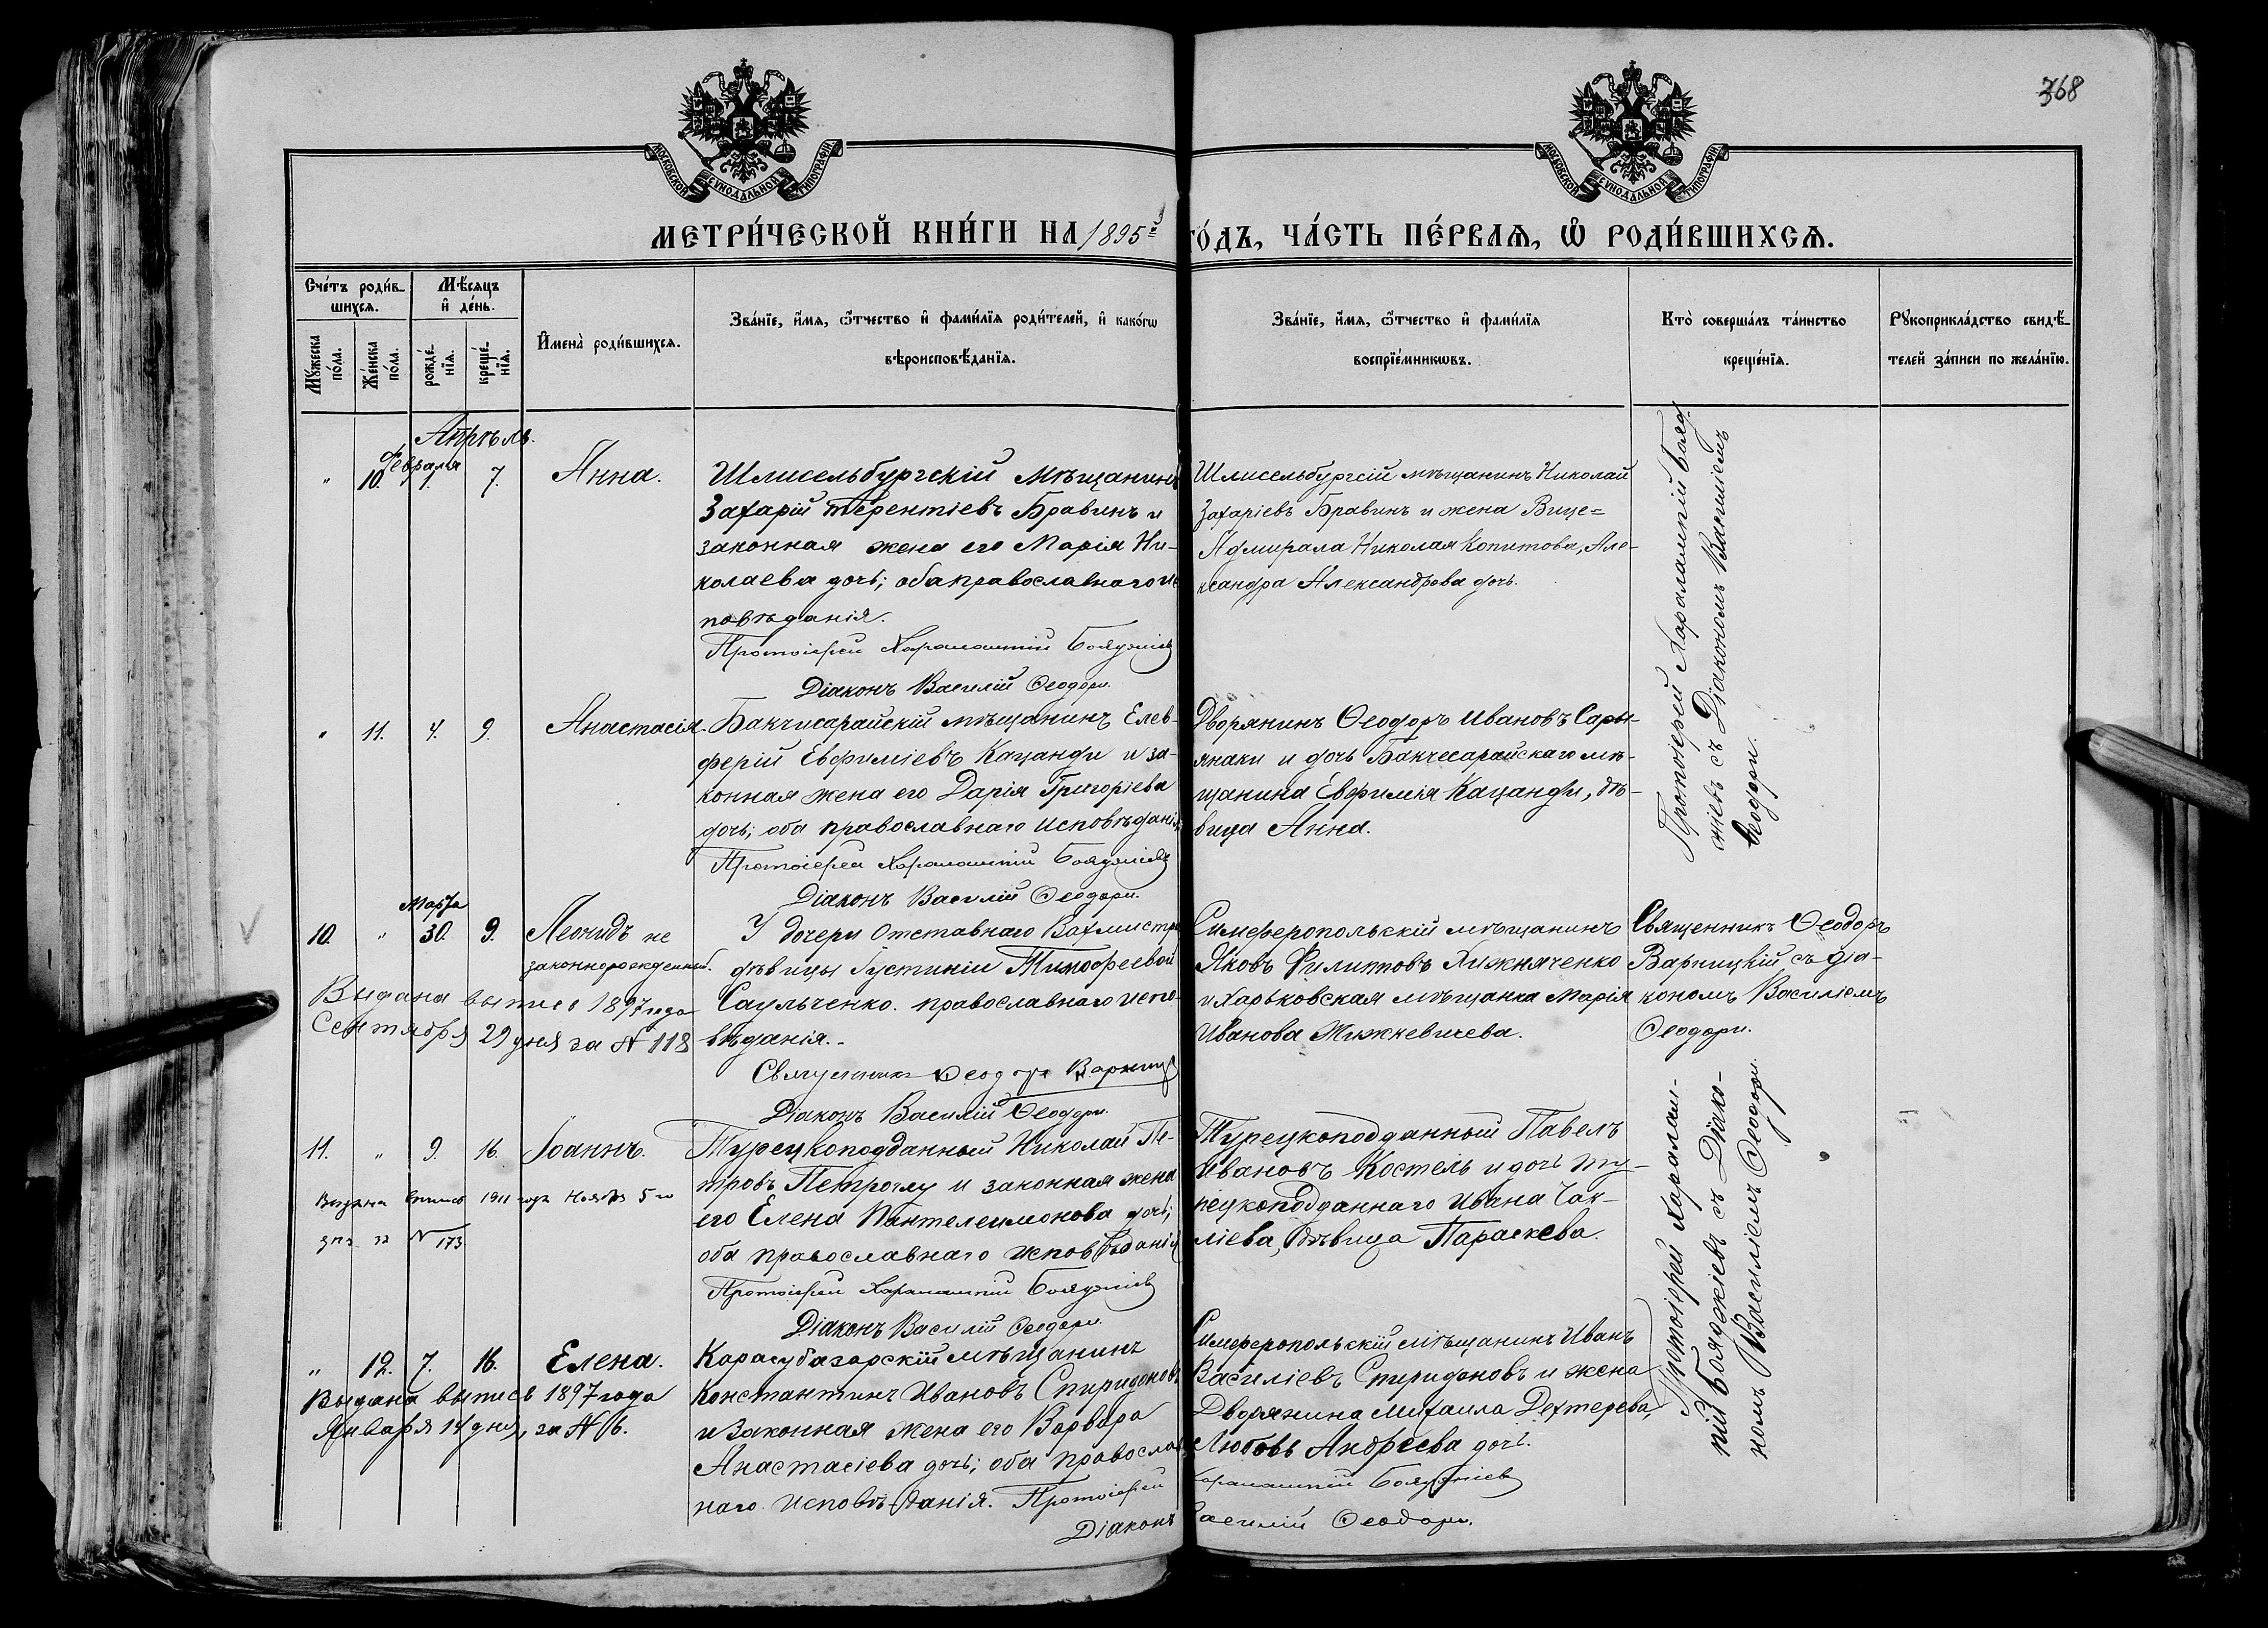 368
МОСКОВСКОЙ СѴНОДАЛЬНОЙ ТИПОГРАФІИ
МОСКОВСКОЙ СѴНОДАЛЬНОЙ ТИПОГРАФІИ
МЕТРИ́ЧЕСКОЙ КНИ́ГИ НА 1895й ГО́ДЪ, ЧА́СТЬ ПЕ́РВАѦ, Ѡ҆ РОДИ́ВШИХСѦ.
Сче́тъ роди́в-
шихсѧ.
Мѣ́сяцъ
и҆ де́нь.
Мꙋ́жеска
по́ла.
Же́нска
по́ла.
рожде́-
нїѧ.
креще́-
нїѧ.
И҆мена̀ роди́вшихсѧ.
Зва́нїе, и҆́мѧ, ѻ҆́тчество и҆ фами́лїѧ роди́телей, и҆ како́гѡ
вѣроисповѣ́данїѧ.
Зва́нїе, и҆́мѧ, ѻ҆́тчество и҆ фами́лїѧ
воспрїе́мникѡвъ.
Кто̀ соверша́лъ та́инство
креще́нїѧ.
Рꙋкоприкла́дство свидѣ́-
телей за́писи по жела́нїю.
Апрѣль.
Февраля
" 10. 1. 7. Анна.
Шлисельбургскій мѣщанинъ
Захарій Терентіевъ Бравинъ и
законная жена его Марія Ни-
колаева дочь; оба православнаго ис
повѣданія.
Протоіерей Харалампій Бояджіевъ
Діаконъ Василій Ѳеодори.
Шлисельбургсій мѣщанинъ Николай
Захаріевъ Бравинъ и жена Вице=
Адмирала Николая Копитова, Але-
ксандра Александрова дочь.
Протоіерей Харалампій Бояд-
жіевъ съ Діакономъ Василіемъ
Ѳеодори.
" 11. 4. 9. Анастасія.
Бакчисарайскій мѣщанинъ Елев-
ферій Евфиміевъ Кацанди и за-
конная жена его Дарія Григоріева
дочь; оба православнаго исповѣданія
Протоіерей Харалампій Бояджіевъ
Діаконъ Василій Ѳеодори.
Дворянинъ Ѳеодоръ Ивановъ Сары-
янаки и дочь Бакчесарайскаго мѣ-
щанина Евфимія Кацанди, дѣ-
вица Анна.
Марта
10. " 30. 9. Леонидъ не
законнорожденный.
Выдана выпись 1897 года
Сентября 29 дня за № 118
У дочери отставнаго Вахмистра
дѣвицы Іустиніи Тимофеевой
Саульченко. православнаго испо-
вѣданія.
Священникъ Ѳеодоръ Варницкій
Діаконъ Василій Ѳеодори.
Симферопольскій мѣщанинъ
Яковъ Филиповъ Хижняченко
и Харьковская мѣщанка Марія
Иванова Мижневичева.
Священникъ Ѳеодоръ
Варницкій съ діа-
кономъ Василіемъ
Ѳеодори.
11. " 9. 16. Іоаннъ.
Выдана выпись 1911 года Ноября 5 го
дня за № 173
Турецкоподданный Николай Пе-
тровъ Петроглу и законная жена
его Елена Пантелеимонова дочь;
оба православнаго исповѣданія
Протоіерей Харалампій Бояджіевъ
Діаконъ Василій Ѳеодори.
Турецкоподданный Павелъ
Ивановъ Костель и дочь ту-
рецкоподданнаго Ивана Чак-
ліева, дѣвица Параскева.
Протоіерей Харалам-
пій Бояджіевъ съ Діако-
номъ Василіемъ Ѳеодори.
" 12. 7. 16. Елена.
Выдана выпись 1897 года
Января 14 дня, за № 6.
Карасубазарскій мѣщанинъ
Константинъ Ивановъ Спиридоновъ
и законная жена его Варвара
Анастасіева дочь; оба православ
наго исповѣданія. Протоіерей Харалампій Бояджіевъ
Діаконъ Василій Ѳеодори.
Симферопольскій мѣщанинъ Иванъ
Василіевъ Спиридоновъ и жена
Дворянина Михаила Дехтерева,
Любовь Андреева дочь.